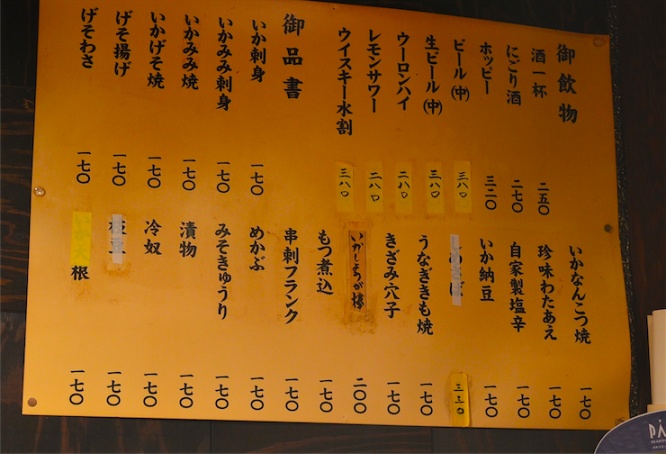 御飲物
酒一杯 二五〇
にごり酒 二七〇
ホッピー 三二〇
ビール(中) 三八〇
生ビール(中) 三八〇
ウーロンハイ 二八〇
レモンサワー 二八〇
ウイスキー水割 三八〇
御品書
いか刺身 一七〇
いかみみ刺身 一七〇
いかみみ焼 一七〇
いかげそ焼 一七〇
げそ揚げ 一七〇
げそわさ 一七〇
いかなんこつ焼 一七〇
珍味わたあえ 一七〇
自家製塩辛 一七〇
いか納豆 一七〇
しめさば 三三〇
うなぎきも焼 一七〇
きざみ穴子 一七〇
いかしょうが棒 二〇〇
もつ煮込 一七〇
串刺フランク 一七〇
めかぶ 一七〇
みそきゅうり 一七〇
漬物 一七〇
冷奴 一七〇
一七〇
根 一七〇